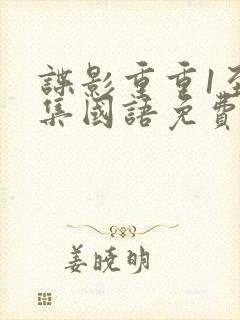 諜影重重1至
集國語免費
姜曉明